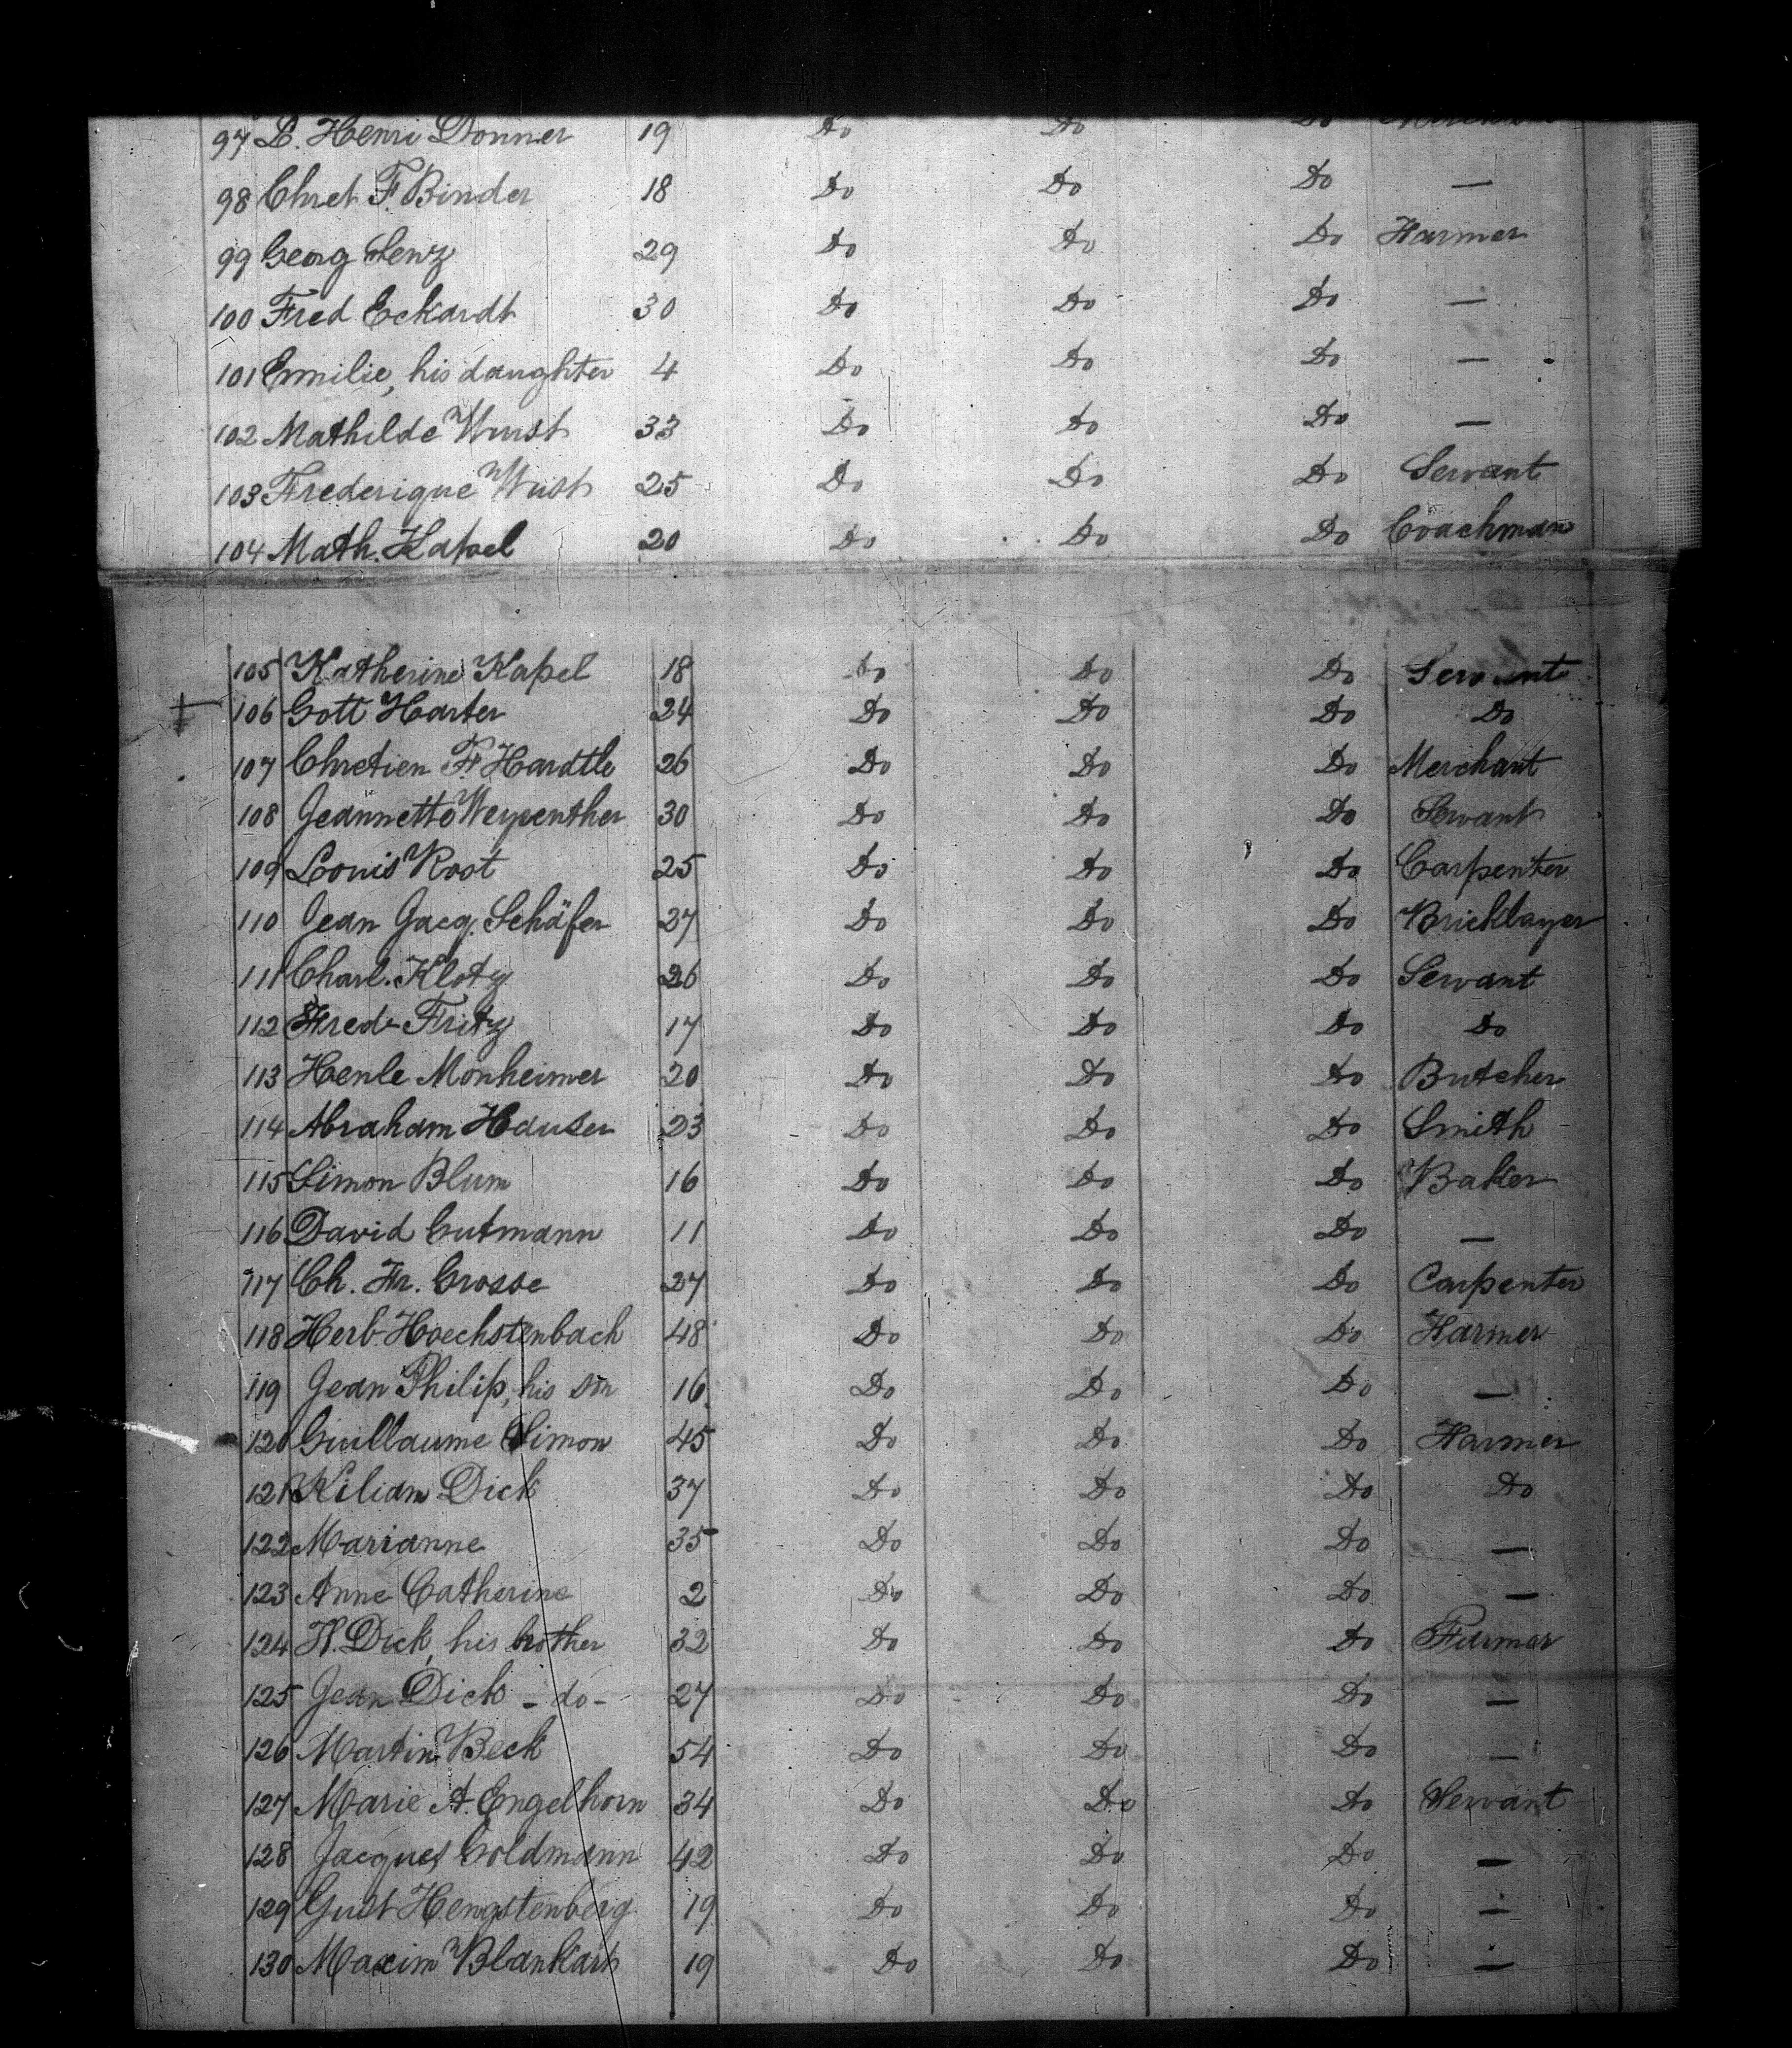 97 L. Henri Donner 19 Do Do Do
98 Chret F Binder 18 Do Do Do —
99 Georg Lenz 29 Do Do Do Farmer
100 Fred Eckardt 30 Do Do Do —
101 Emilie, his daughter 4 Do Do Do —
102 Mathilde Wust 33 Do Do Do —
103 Frederique Wust 25 Do Do Do Servant
104 Math. Kapel 20 Do Do Do Coachman
105 Katherine Kapel 18 Do Do Do Servant
106 Gott Harter 24 Do Do Do Do
107 Chretien F Hardtle 26 Do Do Do Merchant
108 Jeannette Weysenther 30 Do Do Do Servant
109 Louis Root 25 Do Do Do Carpenter
110 Jean Jacq. Schäfer 27 Do Do Do Bricklayer
111 Charl. Klotz 26 Do Do Do Servant
112 Fred Fritz 17 Do Do Do Do
113 Henle Monheimer 20 Do Do Do Butcher
114 Abraham Hauser 23 Do Do Do Smith
115 Simon Blum 16 Do Do Do Baker
116 David Gutmann 11 Do Do Do —
117 Ch. Fr. Grosse 27 Do Do Do Carpenter
118 Herb Hoechstenbach 48 Do Do Do Farmer
119 Jean Philip, his son 16 Do Do Do —
120 Guillaume Simon 45 Do Do Do Farmer
121 Kiliam Dick 37 Do Do Do Do
122 Marianne 35 Do Do Do —
123 Anne Catherine 2 Do Do Do —
124 H. Dick, his brother 32 Do Do Do Farmer
125 Jean Dick - do - 27 Do Do Do —
126 Martin Beck 54 Do Do Do —
127 Marie A. Engelhorn 34 Do Do Do Servant
128 Jacques Goldmann 42 Do Do Do —
129 Gust Hengstenberg 19 Do Do Do —
130 Maxim Blankart 19 Do Do Do —